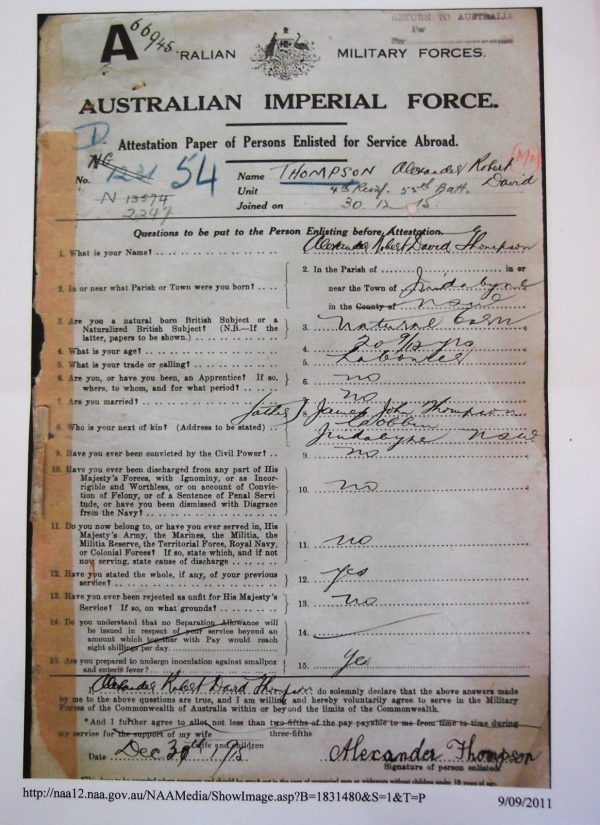 A 66945
RETURN TO AUSTRALIA
Per
RALIAN MILITARY FORCES.
AUSTRALIAN IMPERIAL FORCE.
D
Attestation Paper of Persons Enlisted for Service Abroad.
No. 54
Name THOMPSON Alexander Robert David
N 13574
2247
Unit 4th Reinf. 55th Batt.
Joined on 30.12.15.
Questions to be put to the Person Enlisting before Attestation.
1. What is your Name? Alexander Robert David Thompson
2. In or near what Parish or Town were you born?
2. In the Parish of in or
near the Town of Jindabyne
in the County of NSW
3. Are you a natural born British Subject or a
Naturalized British Subject? (N.B.—If the
latter, papers to be shown.)
3. Natural born
4. What is your age? 4. 20 yrs
5. What is your trade or calling? 5. Labourer
6. Are you, or have you been, an Apprentice? If so,
where, to whom, and for what period?
6. no
7. Are you married? no
8. Who is your next of kin? (Address to be stated)
(father) James John Thompson
Cobbin
Jindabyne NSW
9. Have you ever been convicted by the Civil Power? 9. no
10. Have you ever been discharged from any part of His
Majesty's Forces, with Ignominy, or as Incor-
rigible and Worthless, or on account of Convic-
tion of Felony, or of a Sentence of Penal Servi-
tude, or have you been Dismissed with Disgrace
from the Navy?
10. no
11. Do you now belong to, or have you ever served in, His
Majesty's Army, the Marines, the Militia, the
Militia Reserve, the Territorial Force, Royal Navy,
or Colonial Forces? If so, state which, and if not
now serving, state cause of discharge
11. no
12. Have you stated the whole, if any, of your previous
service?
12. yes
13. Have you ever been rejected as unfit for His Majesty's
Service? If so, on what grounds?
13. no
14. Do you understand that no Separation Allowance
will be issued in respect of your service beyond an
amount which together with Pay would reach
eight shillings per day.
14.
15. Are you prepared to undergo inoculation against smallpox
and enteric fever?
15. Yes
I, Alexander Robert David Thompson do solemnly declare that the above answers made
by me to the above questions are true, and I am willing and hereby voluntarily agree to serve in the Military
Forces of the Commonwealth of Australia within or beyond the limits of the Commonwealth.
*And I further agree to allot not less than two-fifths of the pay payable to me from time to time during
my service for the support of my wife three-fifths
wife and children
Date Dec 30th/15 Alexander Thompson
Signature of person enlisted.
http://naa12.naa.gov.au/NAAMedia/ShowImage.asp?B=1831480&S=1&T=P 9/09/2011